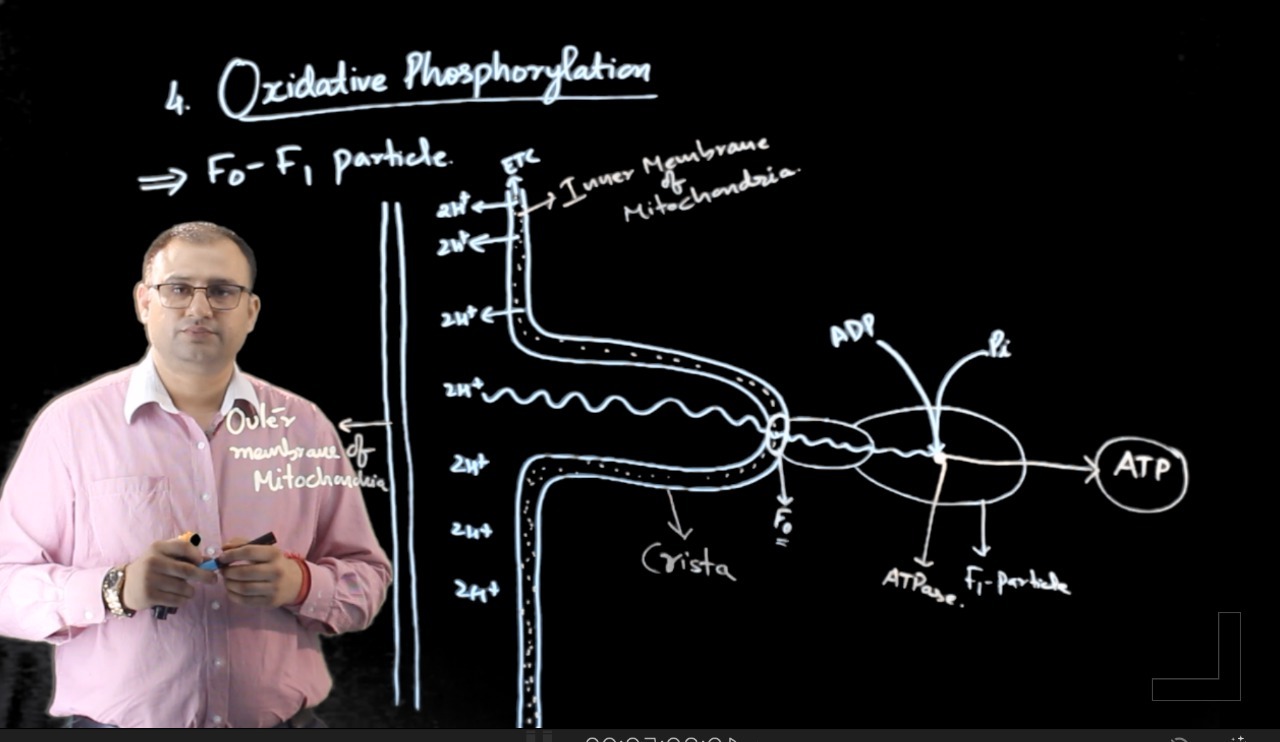 4. Oxidative Phosphorylation
⇒ F0-F1 particle.
ETC
Inner Membrane
of
Mitochondria.
2H+
2H+
2H+
2H+
2H+
2H+
2H+
Outer
membrane of
Mitochondria
ADP
Pi
ATP
F0
Crista
ATPase.
F1-particle